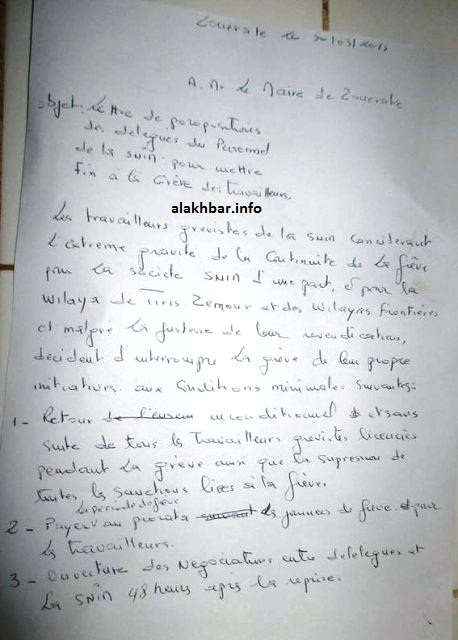 Zouerate le 30/03/2015
A. Mr le Maire de Zouerate
objet: Lettre de propositions
des délégués du Personnel
de la SNIM pour mettre
Fin à la Grève des travailleurs
alakhbar.info
Les travailleurs grevistes de la SNIM Considerant
l'extreme gravite de la Continuite de la grève
pour la societe SNIM d'une part, et pour la
Wilaya de Tiris Zemour et des Wilayas Frontières
et malgre la justesse de leur revendications,
decident d'interrompre la grève de leur propre
initiatives aux Conditions minimales suivantes:
1 - Retour inconditionnel et sans
suite de tous les travailleurs grevistes licenciés
pendant la grève ainsi que la supression de
toutes les sanctions liees à la grève.
la periode de greve
2 - Payer au prorata les journées de grève pour
les travailleurs.
3 - Ouverture des Negociations entre delelegues et
la SNIM 48 heurs après la reprise.